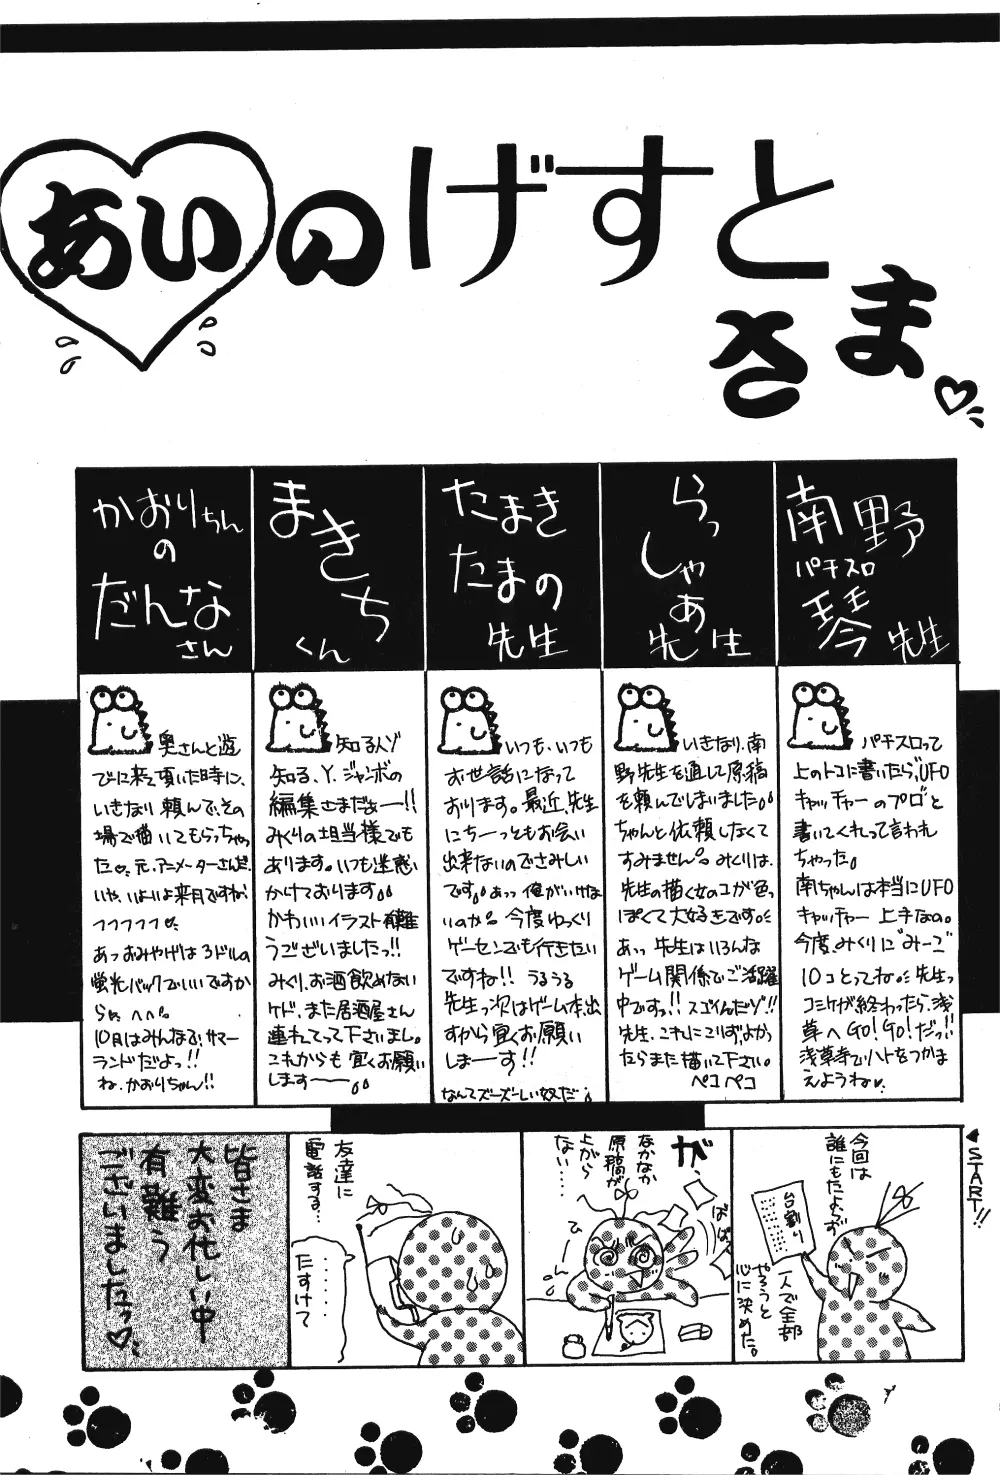 あいのげすと
さま
南野
パチスロ
琴先生
パチスロって
上のトコに書いたら、UFO
キャッチャーのプロと
書いてくれって言われ
ちゃった。
南ちゃんは本当にUFO
キャッチャー上手なの。
今度、みくりに"みーご"
10コとってね。先生っ
コミケが終わったら、浅
草へGO!GO!だっ!!
浅草寺でハトをつかま
えようね
らっ
しゃあ
先生
いきなり、南
野先生を通して原稿
を頼んでしまいました。
ちゃんと依頼しなくて
すみません。みくりは、
先生の描く女のコが色っ
ぽくて大好きです
あっ先生はいろんな
ゲーム関係でご活躍
中ですっ!!スゴイんだゾ!!
先生、これにこりず、よかっ
たらまた描いて下さい。
ペコペコ
たまき
たまの
先生
いつも、いつも
お世話になって
おります。最近、先生
にちーっともお会い
出来ないのでさみしい
です。あっ俺がいけな
いのか。今度ゆっくり
ゲーセンでも行きたい
ですね!!うるうる
先生っ次はゲーム本出
すから宜くお願い
しまーす!!
なんてズーズーしい奴だ
まきち
くん
知る人ゾ
知る、Y.ジャンボの
編集さまだぁー!!
みくりの担当様でも
あります。いつも迷惑
かけております
かわいいイラスト有難
うございましたっ!!
みくり、お酒飲めない
ケド、また居酒屋さん
連れてって下さいまし。
これからも宜くお願い
します——
かおりちん
の
だんな
さん
奥さんと遊
びに来て頂いた時に、
いきなり頼んで、その
場で描いてもらっちゃっ
た。元、アニメーターさんだ。
いや、いよいよ来月ですねっ
フフフフフ
あっおみやげは3ドルの
蛍光パックでいいですか
らっ。へへ。
10月はみんなで、サマー
ランドだよっ!!
ね、かおりちゃん!!
START!!
今回は
誰にもたよらず
台割り
一人で全部
やろうと
心に決めた。
が、
なかなか
原稿が
上がら
ない……
ばばっ
ひーん
友達に
電話する…
……
たすけて
皆さま
大変お忙しい中
有難う
ございましたっ